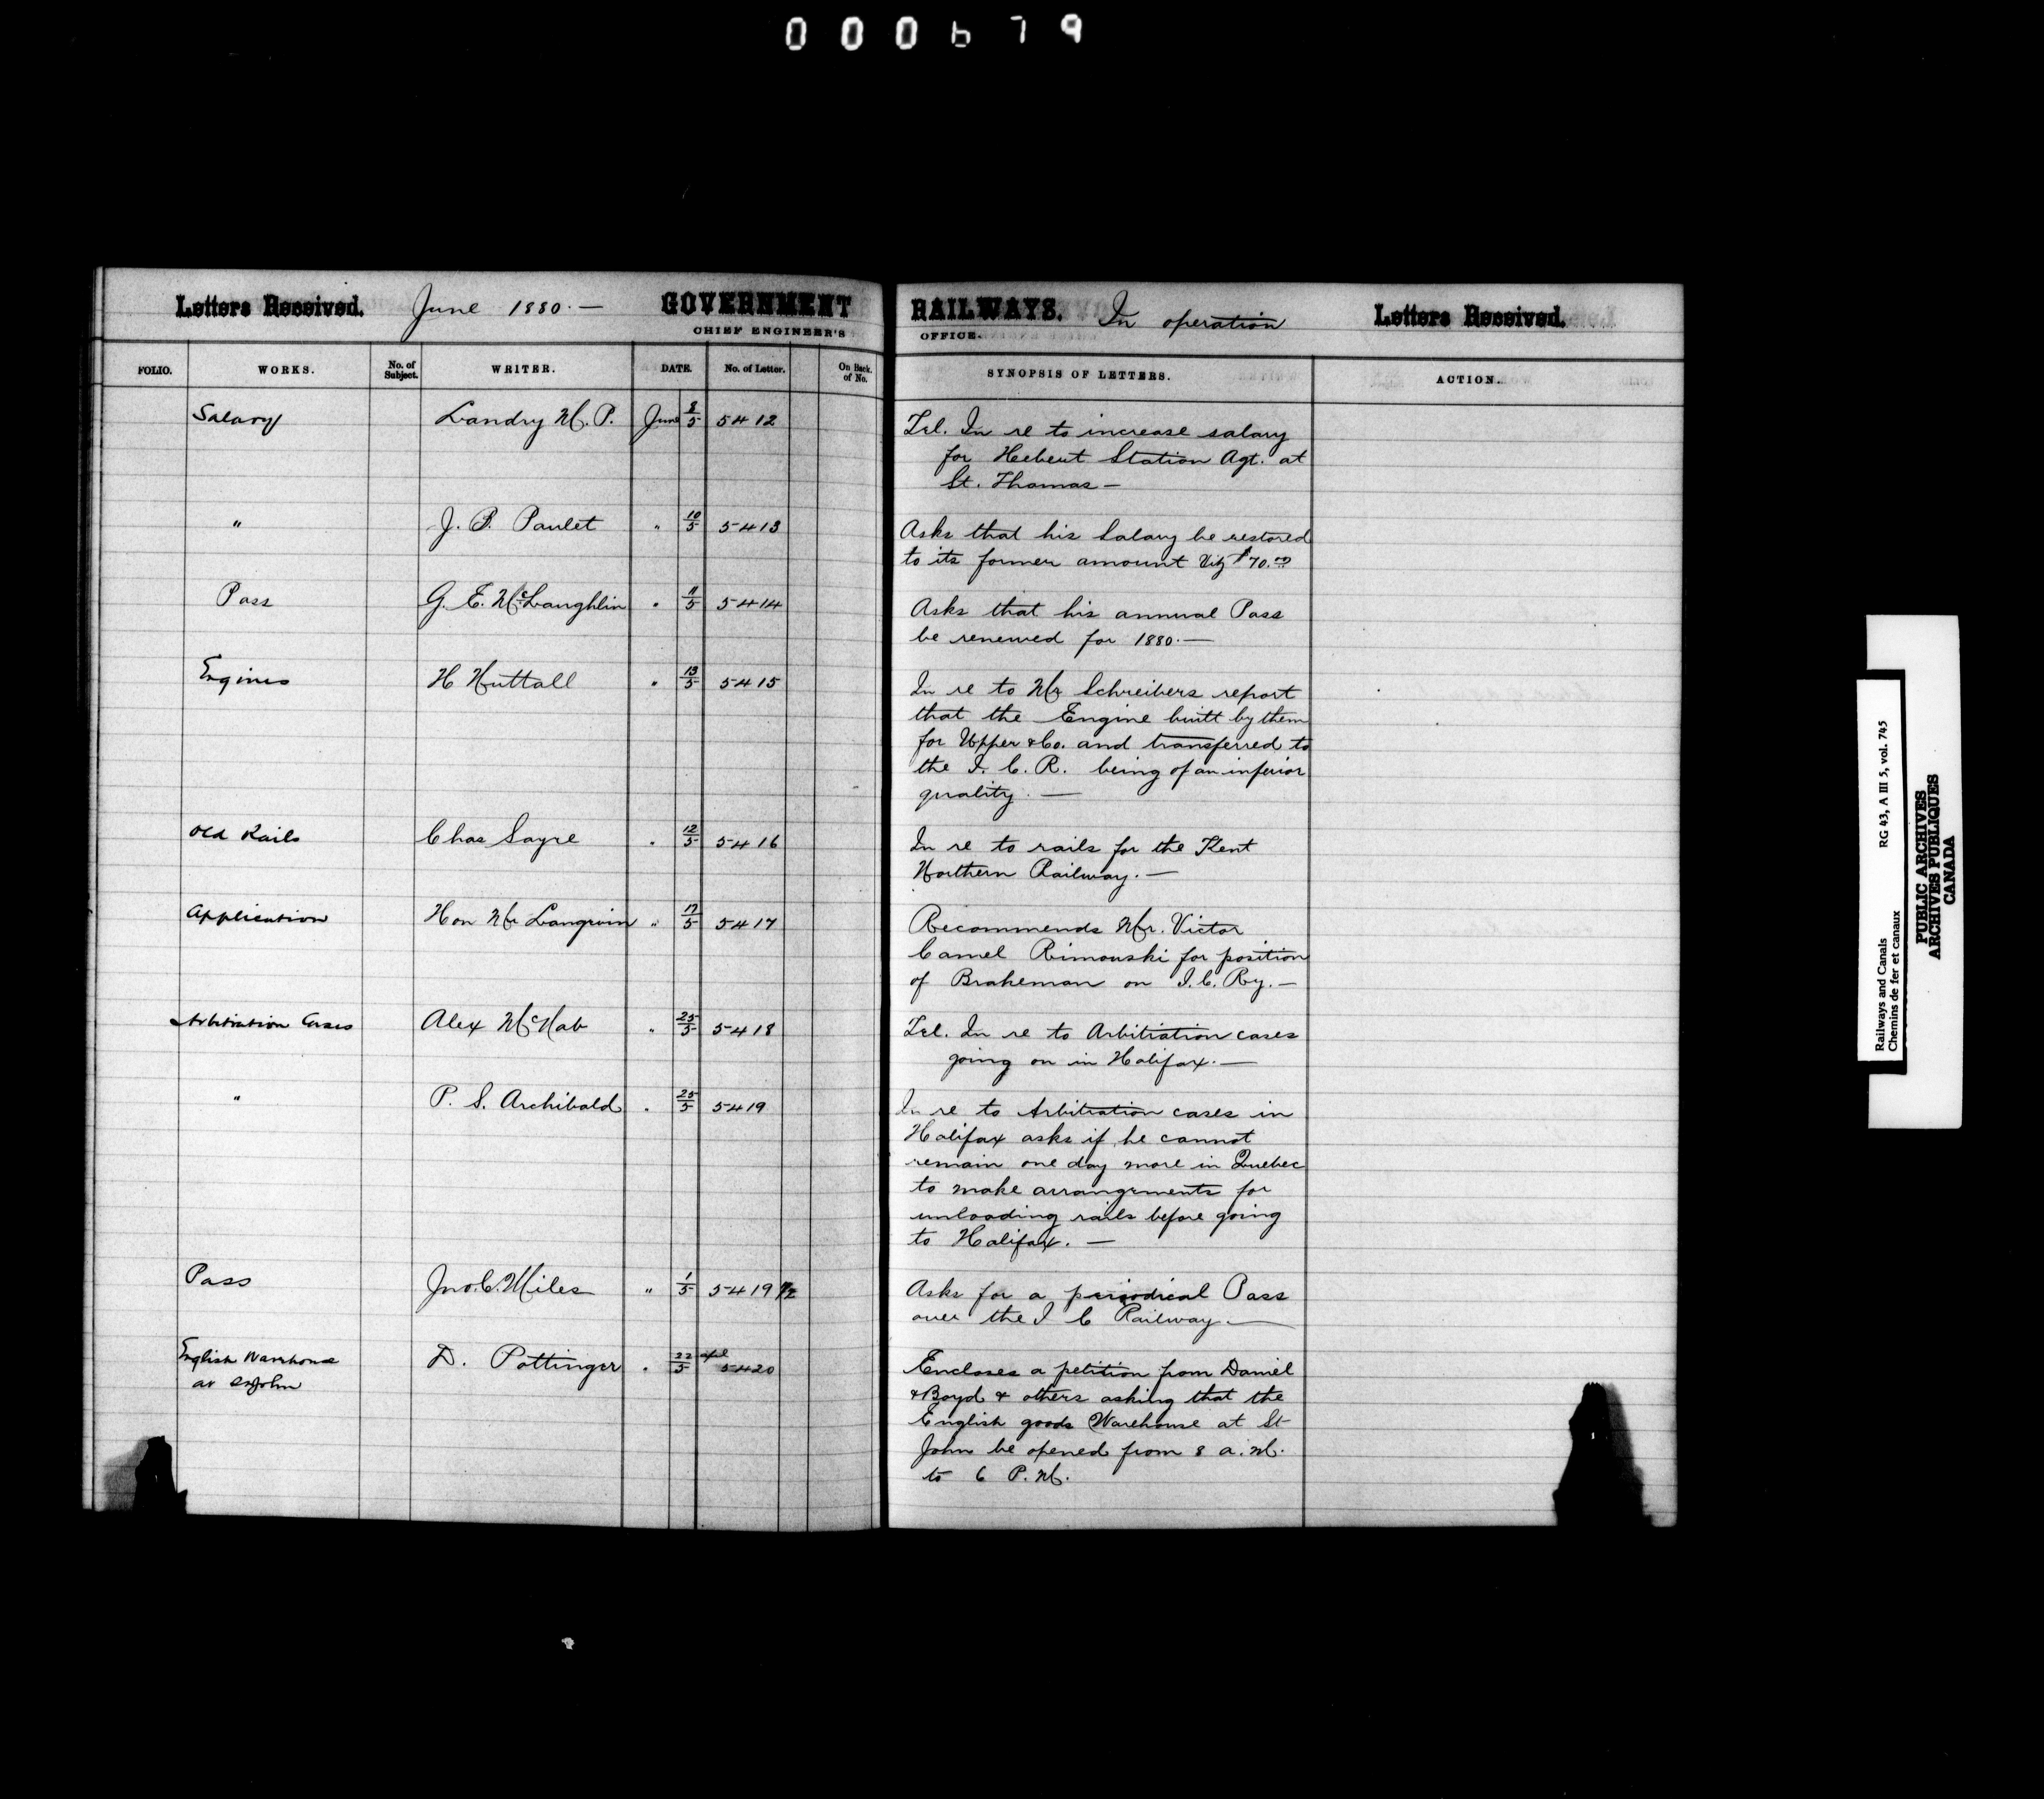 000679
Letters Received. June 1880. — GOVERNMENT RAILWAYS. In operation Letters Received.
CHIEF ENGINEER'S OFFICE.
FOLIO. WORKS. No. of Subject. WRITER. DATE. No. of Letter. On Back of No. SYNOPSIS OF LETTERS. ACTION.
Salary Landry M.P. June 8/5 5412 Tel. In re to increase salary
for Hebert Station Agt. at
St. Thomas —
" J. P. Paulet " 10/5 5413 Asks that his Salary be restored
to its former amount Viz $70.00
Pass G. E. McLaughlin " 11/5 5414 Asks that his annual Pass
be renewed for 1880. —
Engines H Nuttall " 13/5 5415 In re to Mr Schreibers report
that the Engine built by them
for Upper & Co. and transferred to
the I. C. R. being of an inferior
quality. —
Old Rails Chas Sayre " 12/5 5416 In re to rails for the Kent
Northern Railway. —
Application Hon Mr Langevin " 17/5 5417 Recommends Mr. Victor
Camel Rimouski for position
of Brakeman on I. C. Ry. —
Arbitration Cases Alex McNab " 25/5 5418 Tel. In re to Arbitration cases
going on in Halifax. —
" P. S. Archibald " 25/5 5419 In re to Arbitration cases in
Halifax asks if he cannot
remain one day more in Quebec
to make arrangements for
unloading rails before going
to Halifax. —
Pass Jno. C. Miles " 1/5 5419 1/2 Asks for a periodical Pass
over the I C Railway —
English Warehouse D. Pottinger " 22/5 5420 Encloses a petition from Daniel
at St John & Boyd & others asking that the
English goods Warehouse at St
John be opened from 8 a.M.
to 6 P.M.
Railways and Canals RG 43, A III 5, vol. 745
Chemins de fer et canaux
PUBLIC ARCHIVES
ARCHIVES PUBLIQUES
CANADA